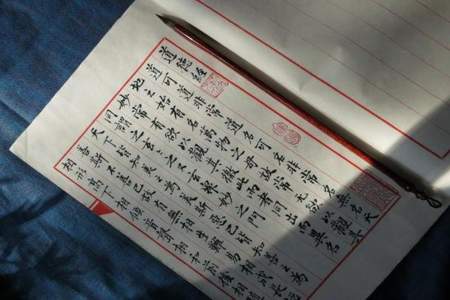 道德經
道可道非常道名可名非常名無名天
地之始有名萬物之母故常無欲以觀其
妙常有欲以觀其徼此兩者同出而異名
同謂之玄玄之又玄眾妙之門
天下皆知美之為美斯惡已皆知善之為
善斯不善已故有無相生難易相成長短
相形高下相傾音聲相和前後相隨